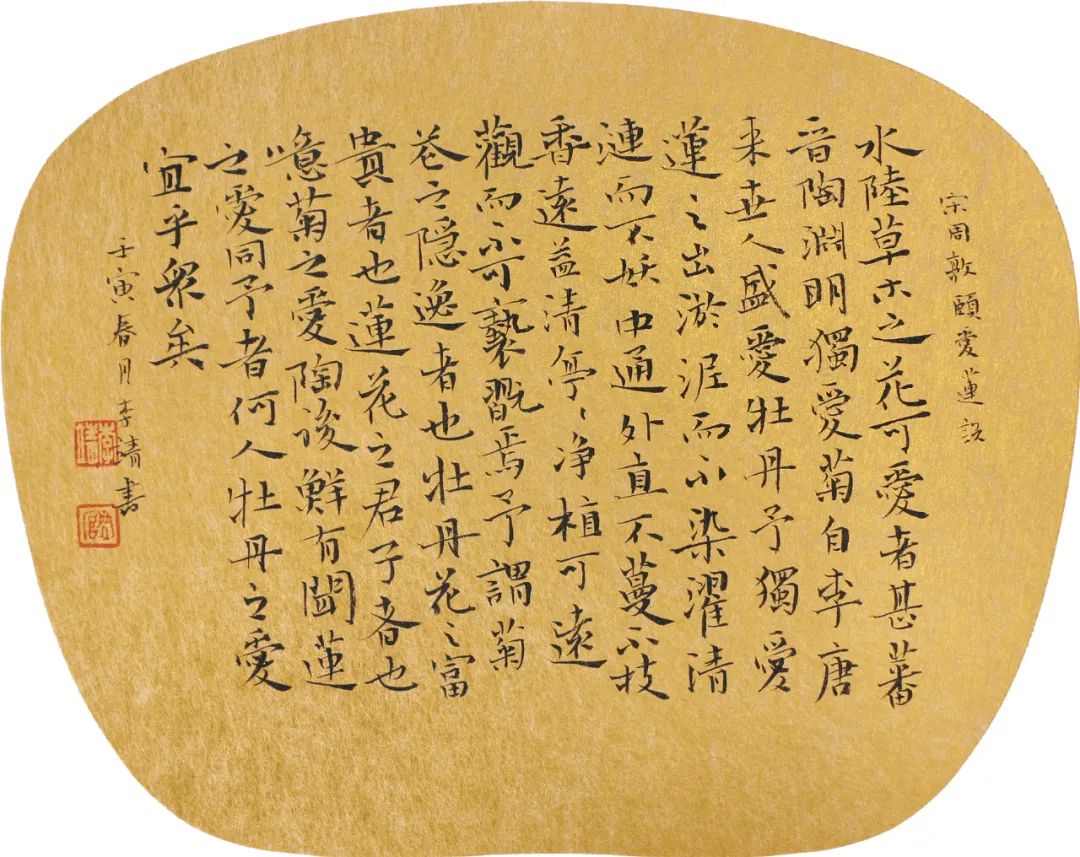 宋周敦頤愛蓮說
水陸草木之花可愛者甚蕃
晉陶淵明獨愛菊自李唐
来世人盛愛牡丹予獨愛
蓮之出淤泥而不染濯清
漣而不妖中通外直不蔓不枝
香遠益清亭〻净植可遠
觀而不可褻翫焉予謂菊
花之隱逸者也牡丹花之富
貴者也蓮花之君子者也
噫菊之愛陶後鮮有聞蓮
之愛同予者何人牡丹之愛
宜乎衆矣
壬寅春月李靖書